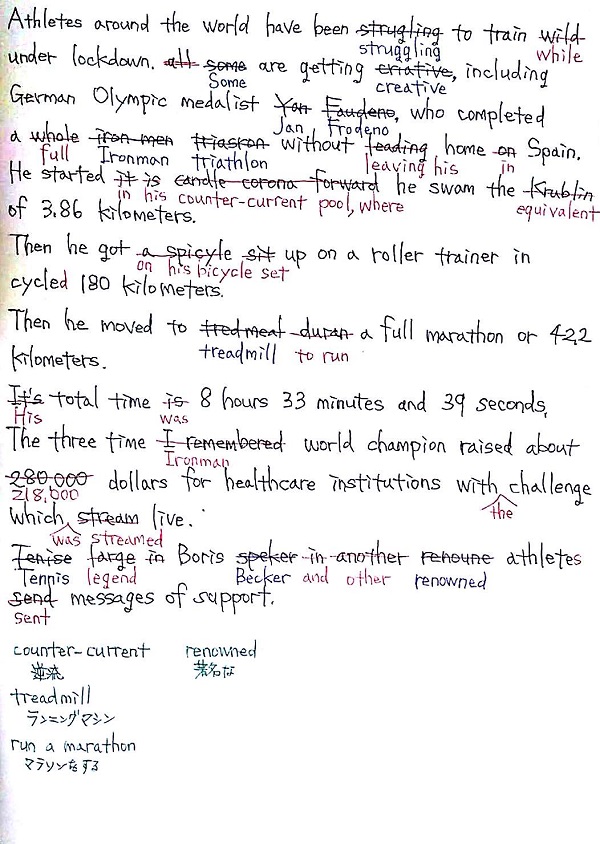 Athletes around the world have been strugling to train wild
struggling while
under lockdown. all some are getting criative, including
Some creative
German Olympic medalist Yan Faudeno, who completed
Jan Frodeno
a whole iron men triasron without leading home on Spain.
full Ironman triathlon leaving his in
He started it is candle corona forward he swam the Krublin
in his counter-current pool, where equivalent
of 3.86 kilometers.
Then he got a spicyle sit up on a roller trainer in
on his bicycle set
cycled 180 kilometers.
Then he moved to tredmeat duran a full marathon or 42.2
treadmill to run
kilometers.
It's total time is 8 hours 33 minutes and 39 seconds,
His was
The three time I remembered world champion raised about
Ironman
280.000 dollars for healthcare institutions with challenge
218,000 the
which stream live.
was streamed
Tenise farge in Boris speker in another renoune athletes
Tennis legend Becker and other renowned
send messages of support.
sent
counter-current renowned
逆流 著名な
treadmill
ランニングマシン
run a marathon
マラソンをする